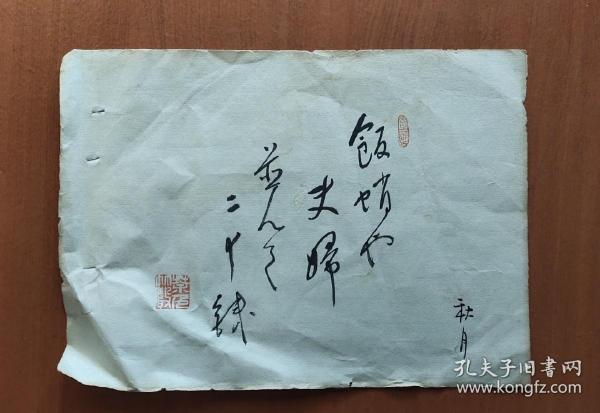 飯蛸や
夫婦
並んで
二十銭
秋月
孔夫子旧書网
www.kongfz.com